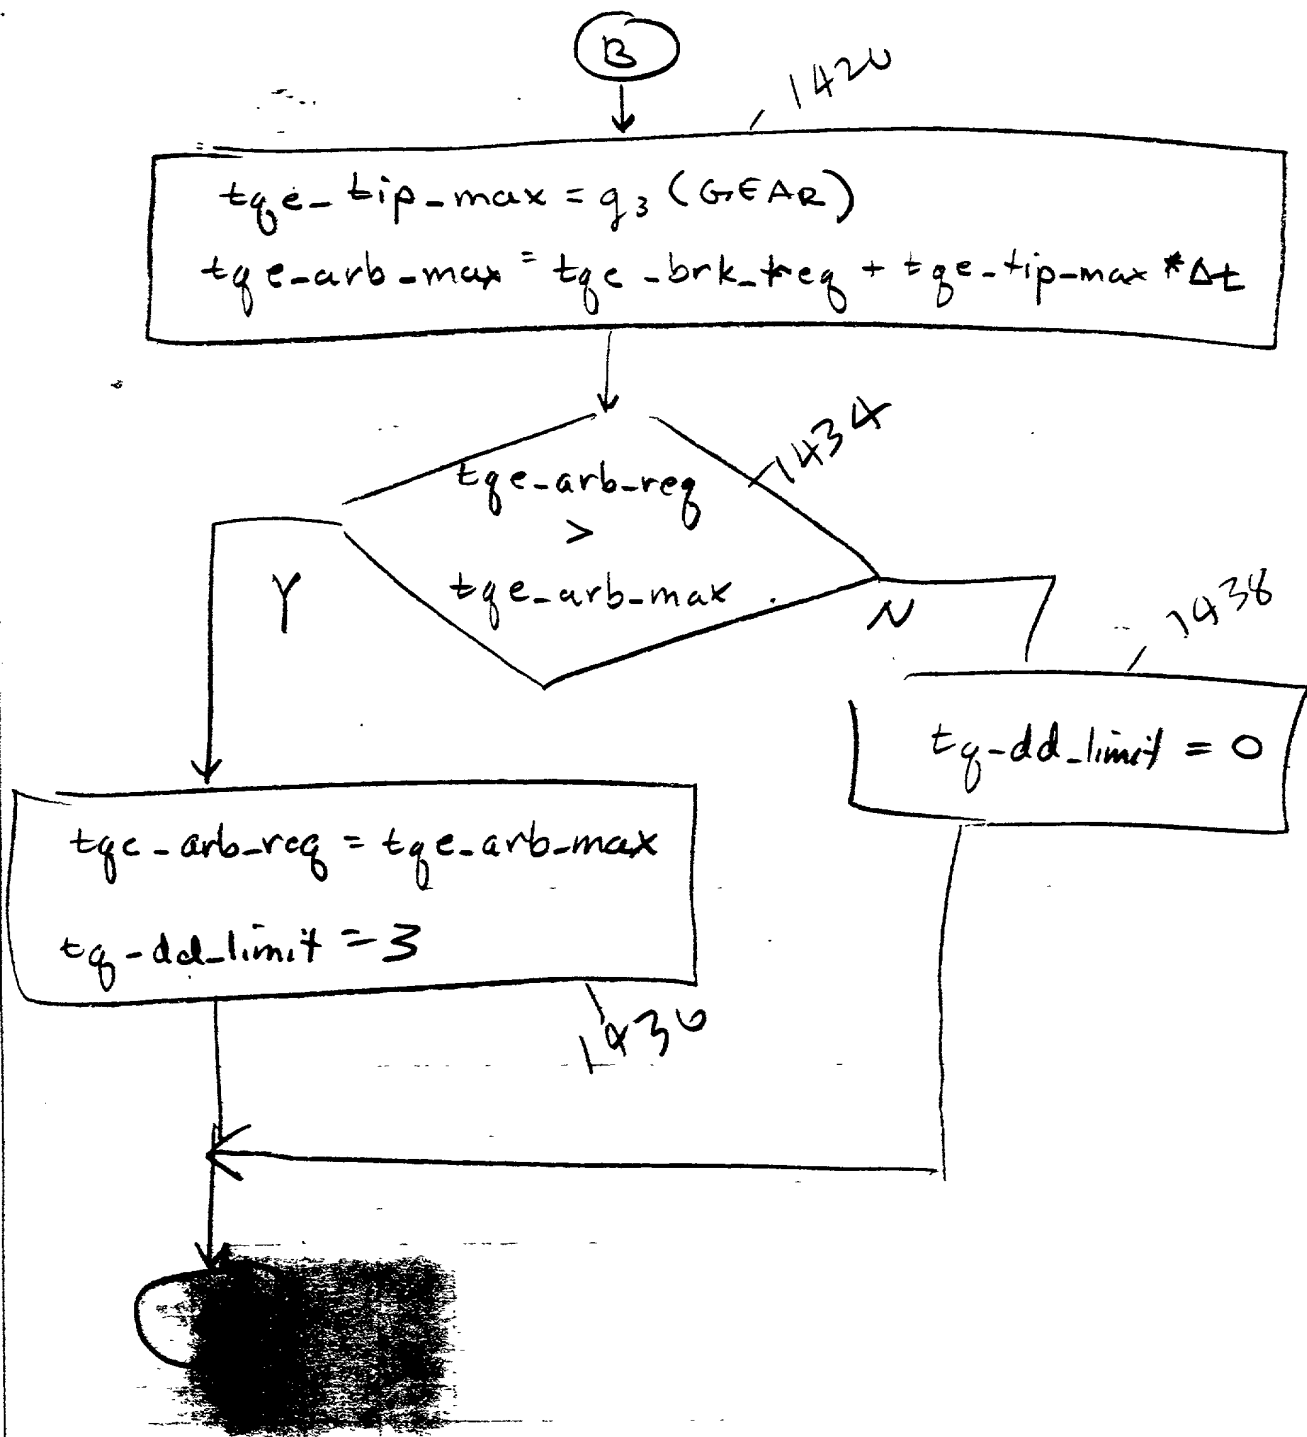 B
1420
tqe_tip_max = g3 (GEAR)
tqe_arb_max = tqe_brk_treq + tqe_tip_max * Δt
1434
tqe_arb_req
>
tqe_arb_max
Y
N
1438
tq_dd_limit = 0
tqe_arb_req = tqe_arb_max
tq_dd_limit = 3
1436